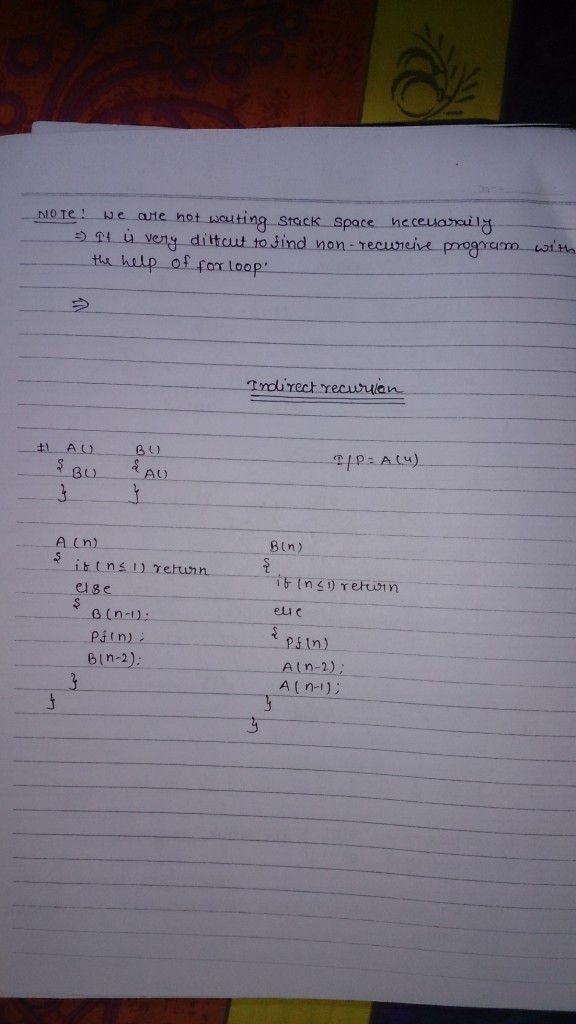 NOTE: we are not wasting stack space necessarily
⇒ It is very difficut to find non-recursive program with
the help of for loop.
⇒
Indirect recursion
#1 A() B() I/P = A(4)
{ B() { A()
} }
A(n) B(n)
{ if (n≤1) return {
if (n≤1) return
else
{ else
B(n-1);
Pf(n); { Pf(n)
B(n-2); A(n-2);
} A(n-1);
} }
}